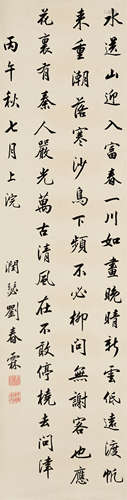 水送山迎入富春一川如畫晚晴新雲低遠渡帆
來重潮落寒沙鳥下頻不必柳間無謝客也應
花裏有秦人嚴光萬古清風在不敢停橈去問津
丙午秋七月上浣
潤琴劉春霖